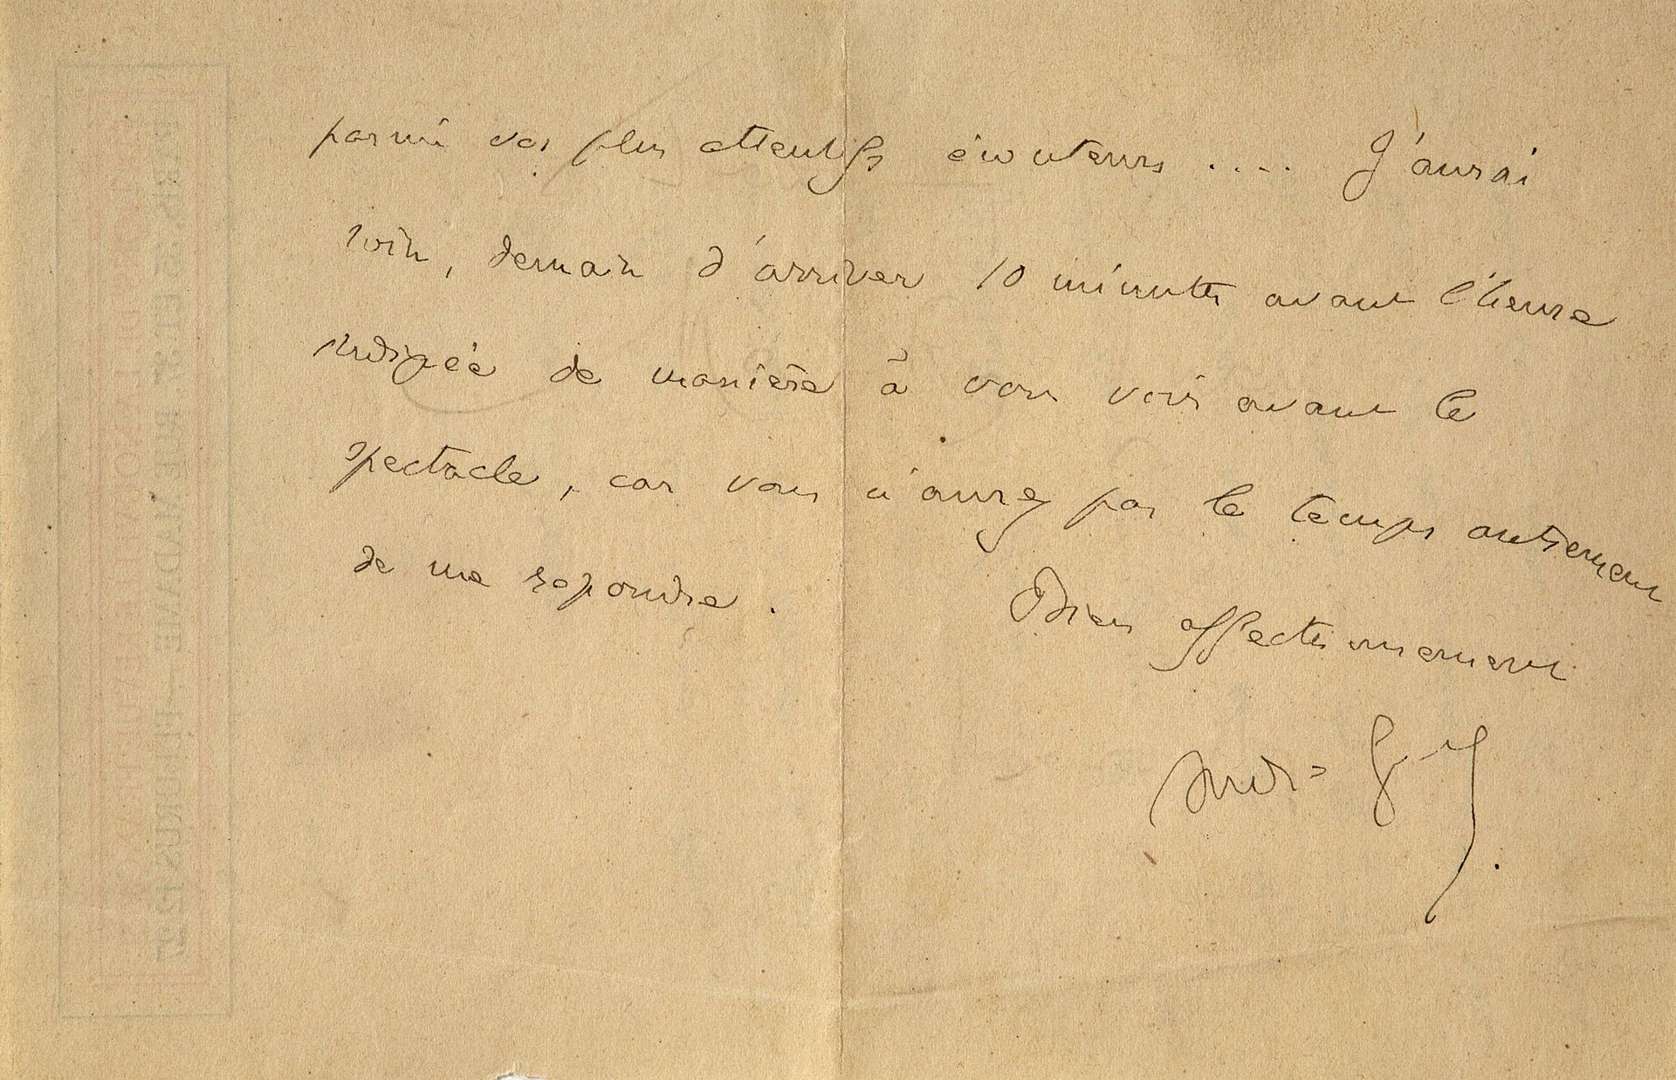 parmi vos plus attentifs écouteurs .... J'aurai
soin, demain d'arriver 10 minutes avant l'heure
de manière à vous voir avant le
spectacle, car vous n'aurez pas le temps autrement
de me repondre.
Bien affectionnement
André G